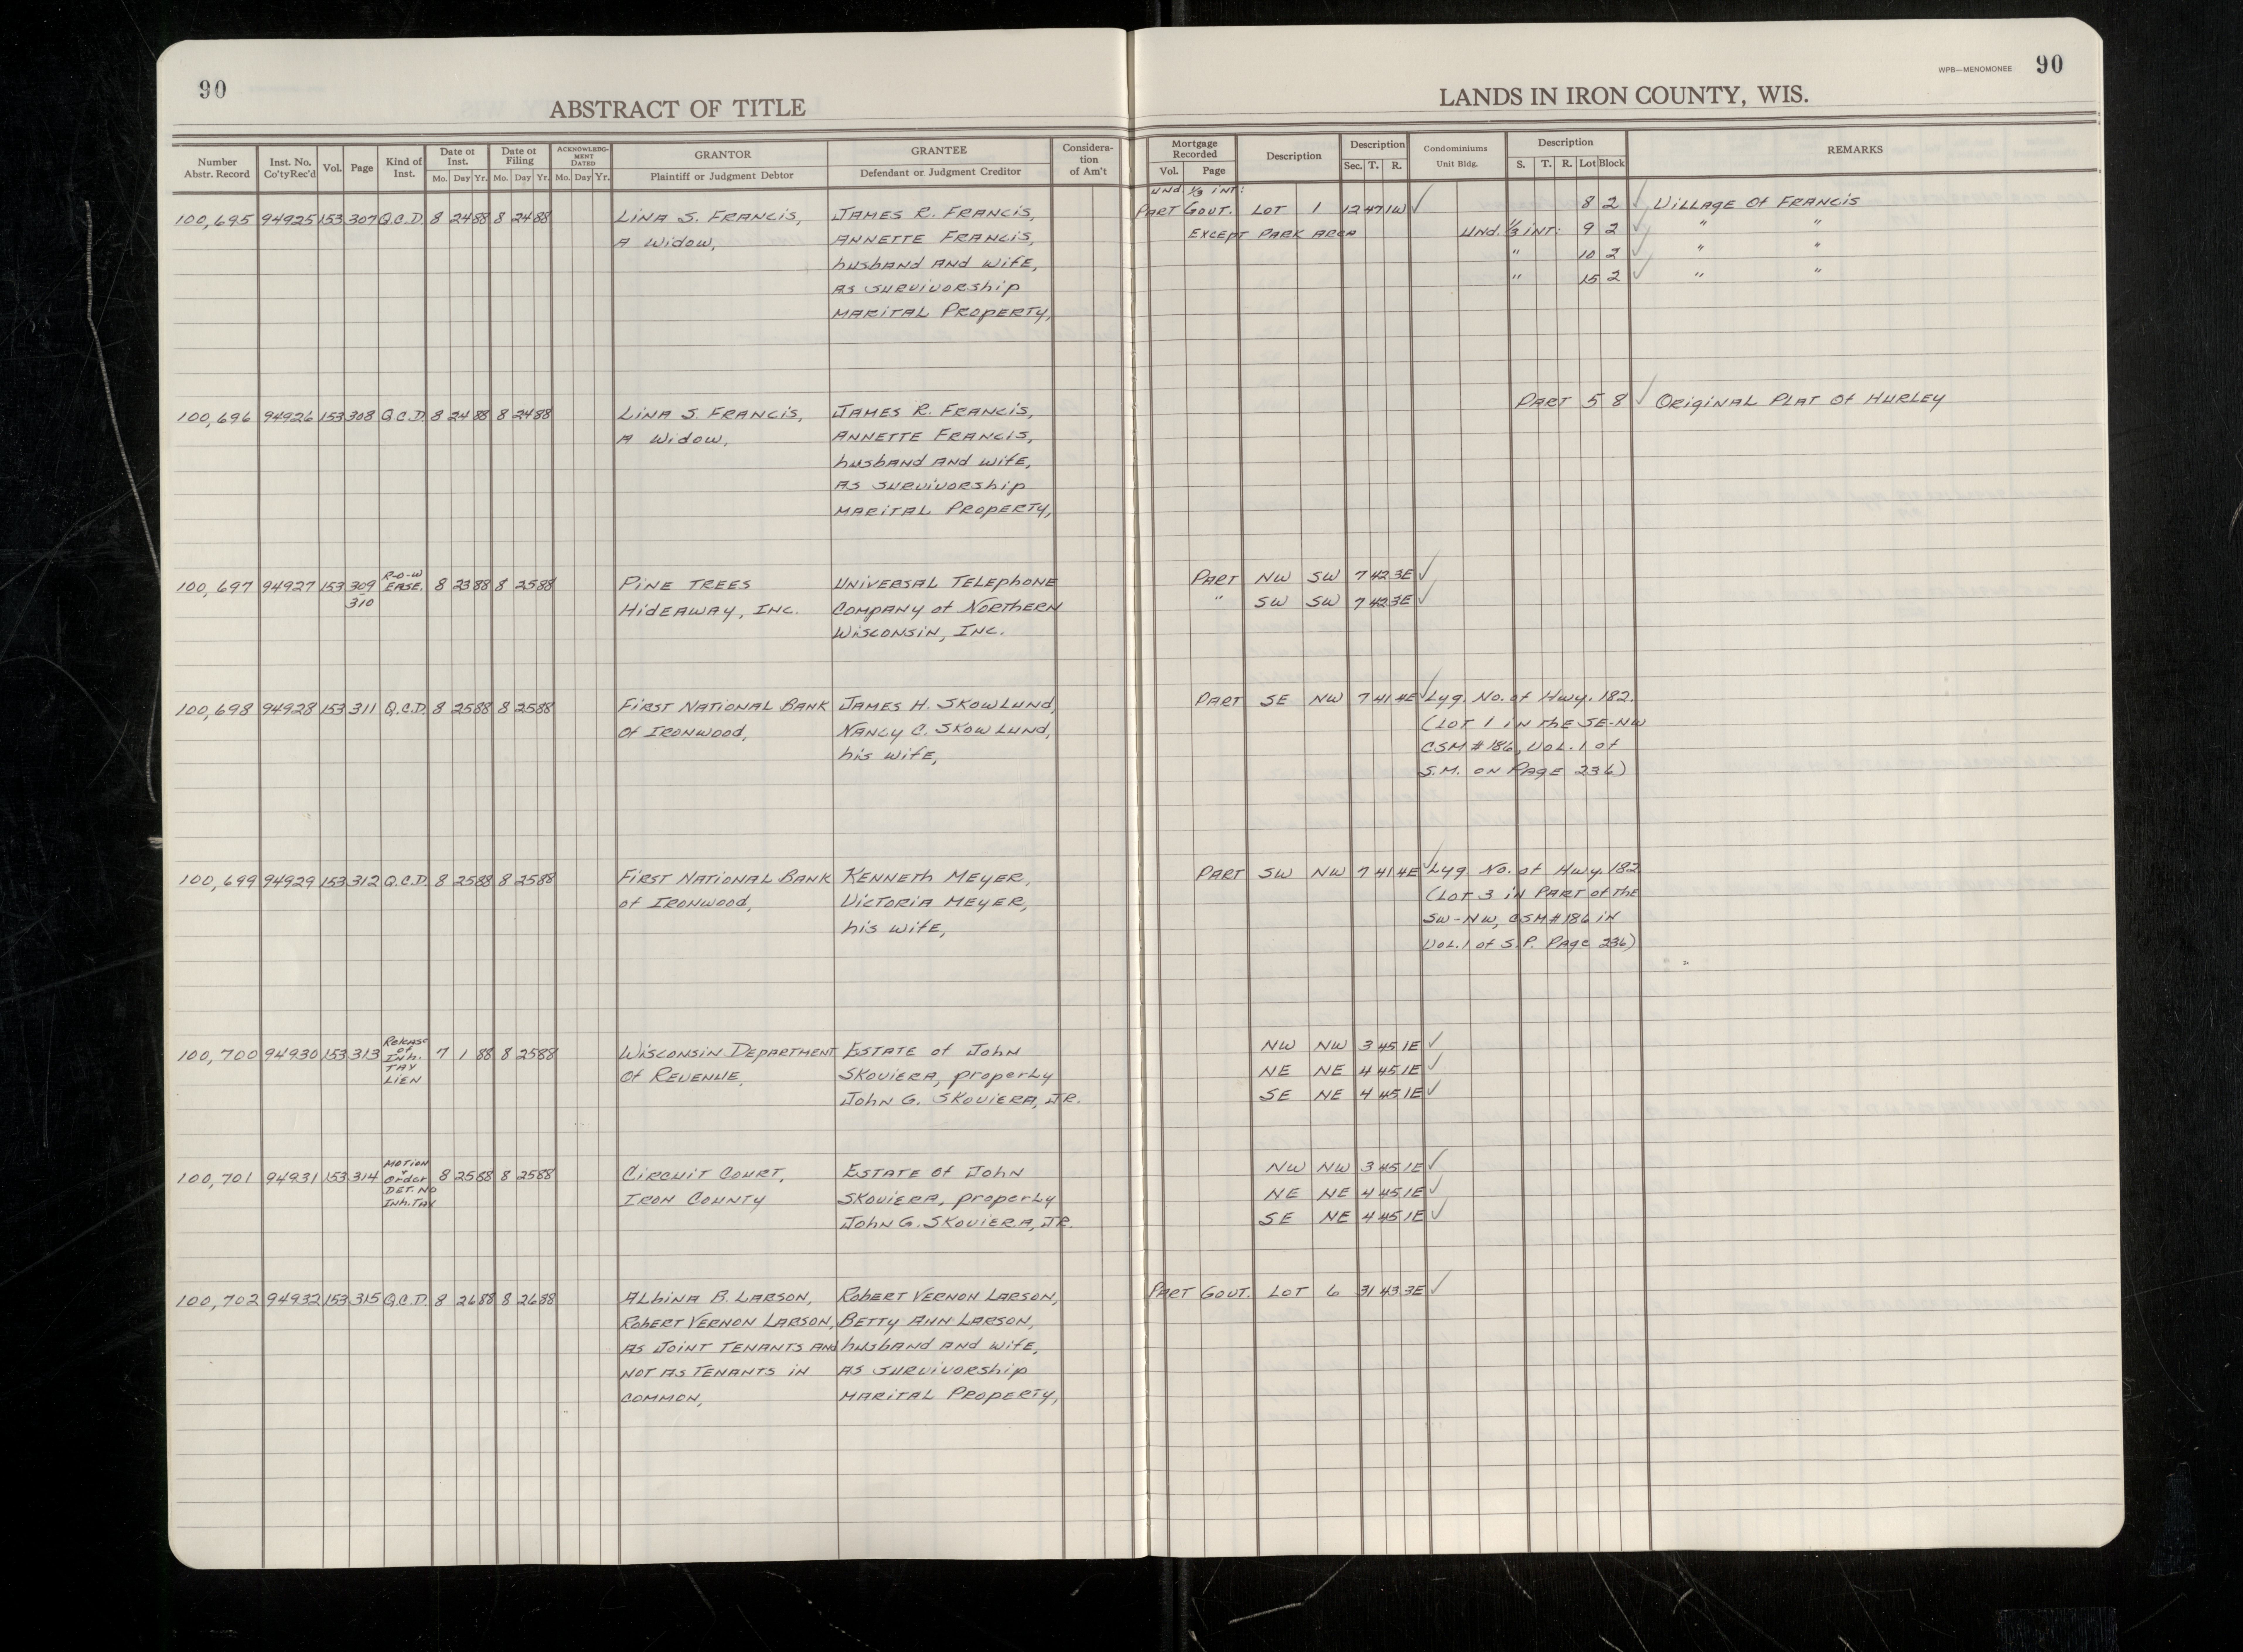 90
ABSTRACT OF TITLE
Number Abstr. Record Inst. No. Co'tyRec'd Vol. Page Kind of Inst. Date of Inst. Mo. Day Yr. Date of Filing Mo. Day Yr. ACKNOWLEDG-MENT DATED Mo. Day Yr. GRANTOR Plaintiff or Judgment Debtor GRANTEE Defendant or Judgment Creditor Considera-tion of Am't
100,695 94925 153 307 Q.C.D. 8 24 88 8 24 88 LINA S. FRANCIS, JAMES R. FRANCIS,
A WIDOW, ANNETTE FRANCIS,
husband AND WIFE,
AS SURVIVORSHIP
MARITAL PROPERTY,
100,696 94926 153 308 Q.C.D. 8 24 88 8 24 88 LINA S. FRANCIS, JAMES R. FRANCIS,
A WIDOW, ANNETTE FRANCIS,
husband AND WIFE,
AS SURVIVORSHIP
MARITAL PROPERTY,
100,697 94927 153 309-310 R-O-W EASE. 8 23 88 8 25 88 PINE TREES UNIVERSAL TELEPHONE
HIDEAWAY, INC. COMPANY of NORTHERN
WISCONSIN, INC.
100,698 94928 153 311 Q.C.D. 8 25 88 8 25 88 FIRST NATIONAL BANK JAMES H. SKOWLUND,
Of IRONWOOD, NANCY C. SKOWLUND,
his WIFE,
100,699 94929 153 312 Q.C.D. 8 25 88 8 25 88 FIRST NATIONAL BANK KENNETH MEYER,
of IRONWOOD, VICTORIA MEYER,
his WIFE,
100,700 94930 153 313 Release of Inh. TAX LIEN 7 1 88 8 25 88 WISCONSIN DEPARTMENT ESTATE of JOHN
Of REVENUE, SKOVIERA, properly
JOHN G. SKOVIERA, JR.
100,701 94931 153 314 MOTION + Order DET. NO Inh. TAX 8 25 88 8 25 88 CIRCUIT COURT, ESTATE Of JOHN
IRON COUNTY SKOVIERA, properly
JOHN G. SKOVIERA, JR.
100,702 94932 153 315 Q.C.D. 8 26 88 8 26 88 ALBINA B. LARSON, ROBERT VERNON LARSON,
ROBERT VERNON LARSON, BETTY ANN LARSON,
AS JOINT TENANTS AND husband AND WIFE,
NOT AS TENANTS IN AS SURVIVORSHIP
COMMON, MARITAL PROPERTY,
WPB—MENOMONEE 90
LANDS IN IRON COUNTY, WIS.
Mortgage Recorded Vol. Page Description Description Sec. T. R. Condominiums Unit Bldg. Description S. T. R. Lot Block REMARKS
Und. 1/3 INT:
PART GOVT. LOT 1 12 47 1W ✓ 8 2 ✓ VILLAGE Of FRANCIS
EXCEPT PARK AREA Und. 1/3 INT: 9 2 ✓ " "
" 10 2 ✓ " "
" 15 2 ✓ " "
PART 5 8 ✓ ORIGINAL PLAT Of HURLEY
PART NW SW 7 42 3E ✓
" SW SW 7 42 3E ✓
PART SE NW 7 41 4E ✓ Lyg. No. of Hwy. 182.
(LOT 1 IN THE SE-NW
CSM # 186, VOL. 1 of
S.M. ON PAGE 236)
PART SW NW 7 41 4E ✓ Lyg. No. of Hwy. 182
(LOT 3 IN PART of the
SW-NW, CSM # 186 IN
VOL. 1 of S.P. PAGE 236)
NW NW 3 45 1E ✓
NE NE 4 45 1E ✓
SE NE 4 45 1E ✓
NW NW 3 45 1E ✓
NE NE 4 45 1E ✓
SE NE 4 45 1E ✓
PART GOVT. LOT 6 31 43 3E ✓